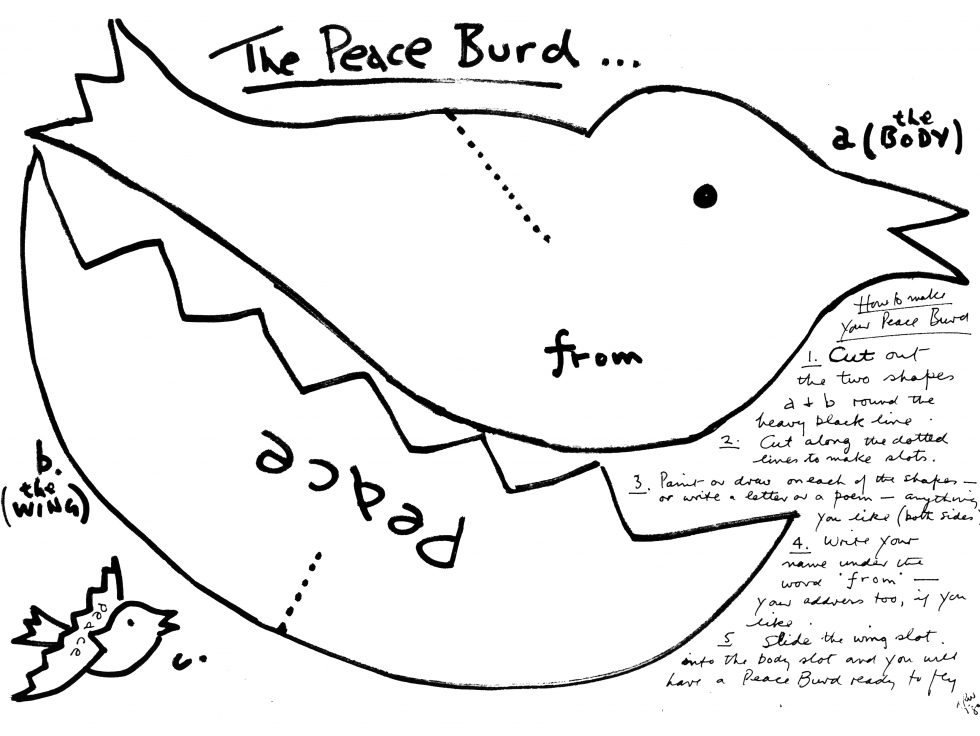 The Peace Burd ...
a (the BODY)
from
How to make
your Peace Burd
1. Cut out
the two shapes
a + b round the
heavy black line.
2. Cut along the dotted
lines to make slots.
3. Paint or draw on each of the shapes —
or write a letter or a poem — anything
you like (both sides)
4. Write your
name under the
word 'from' —
your address too, if you
like.
5 Slide the wing slot.
into the body slot and you will
have a Peace Burd ready to fly
Peace
b.
the
(WING)
Peace
c.